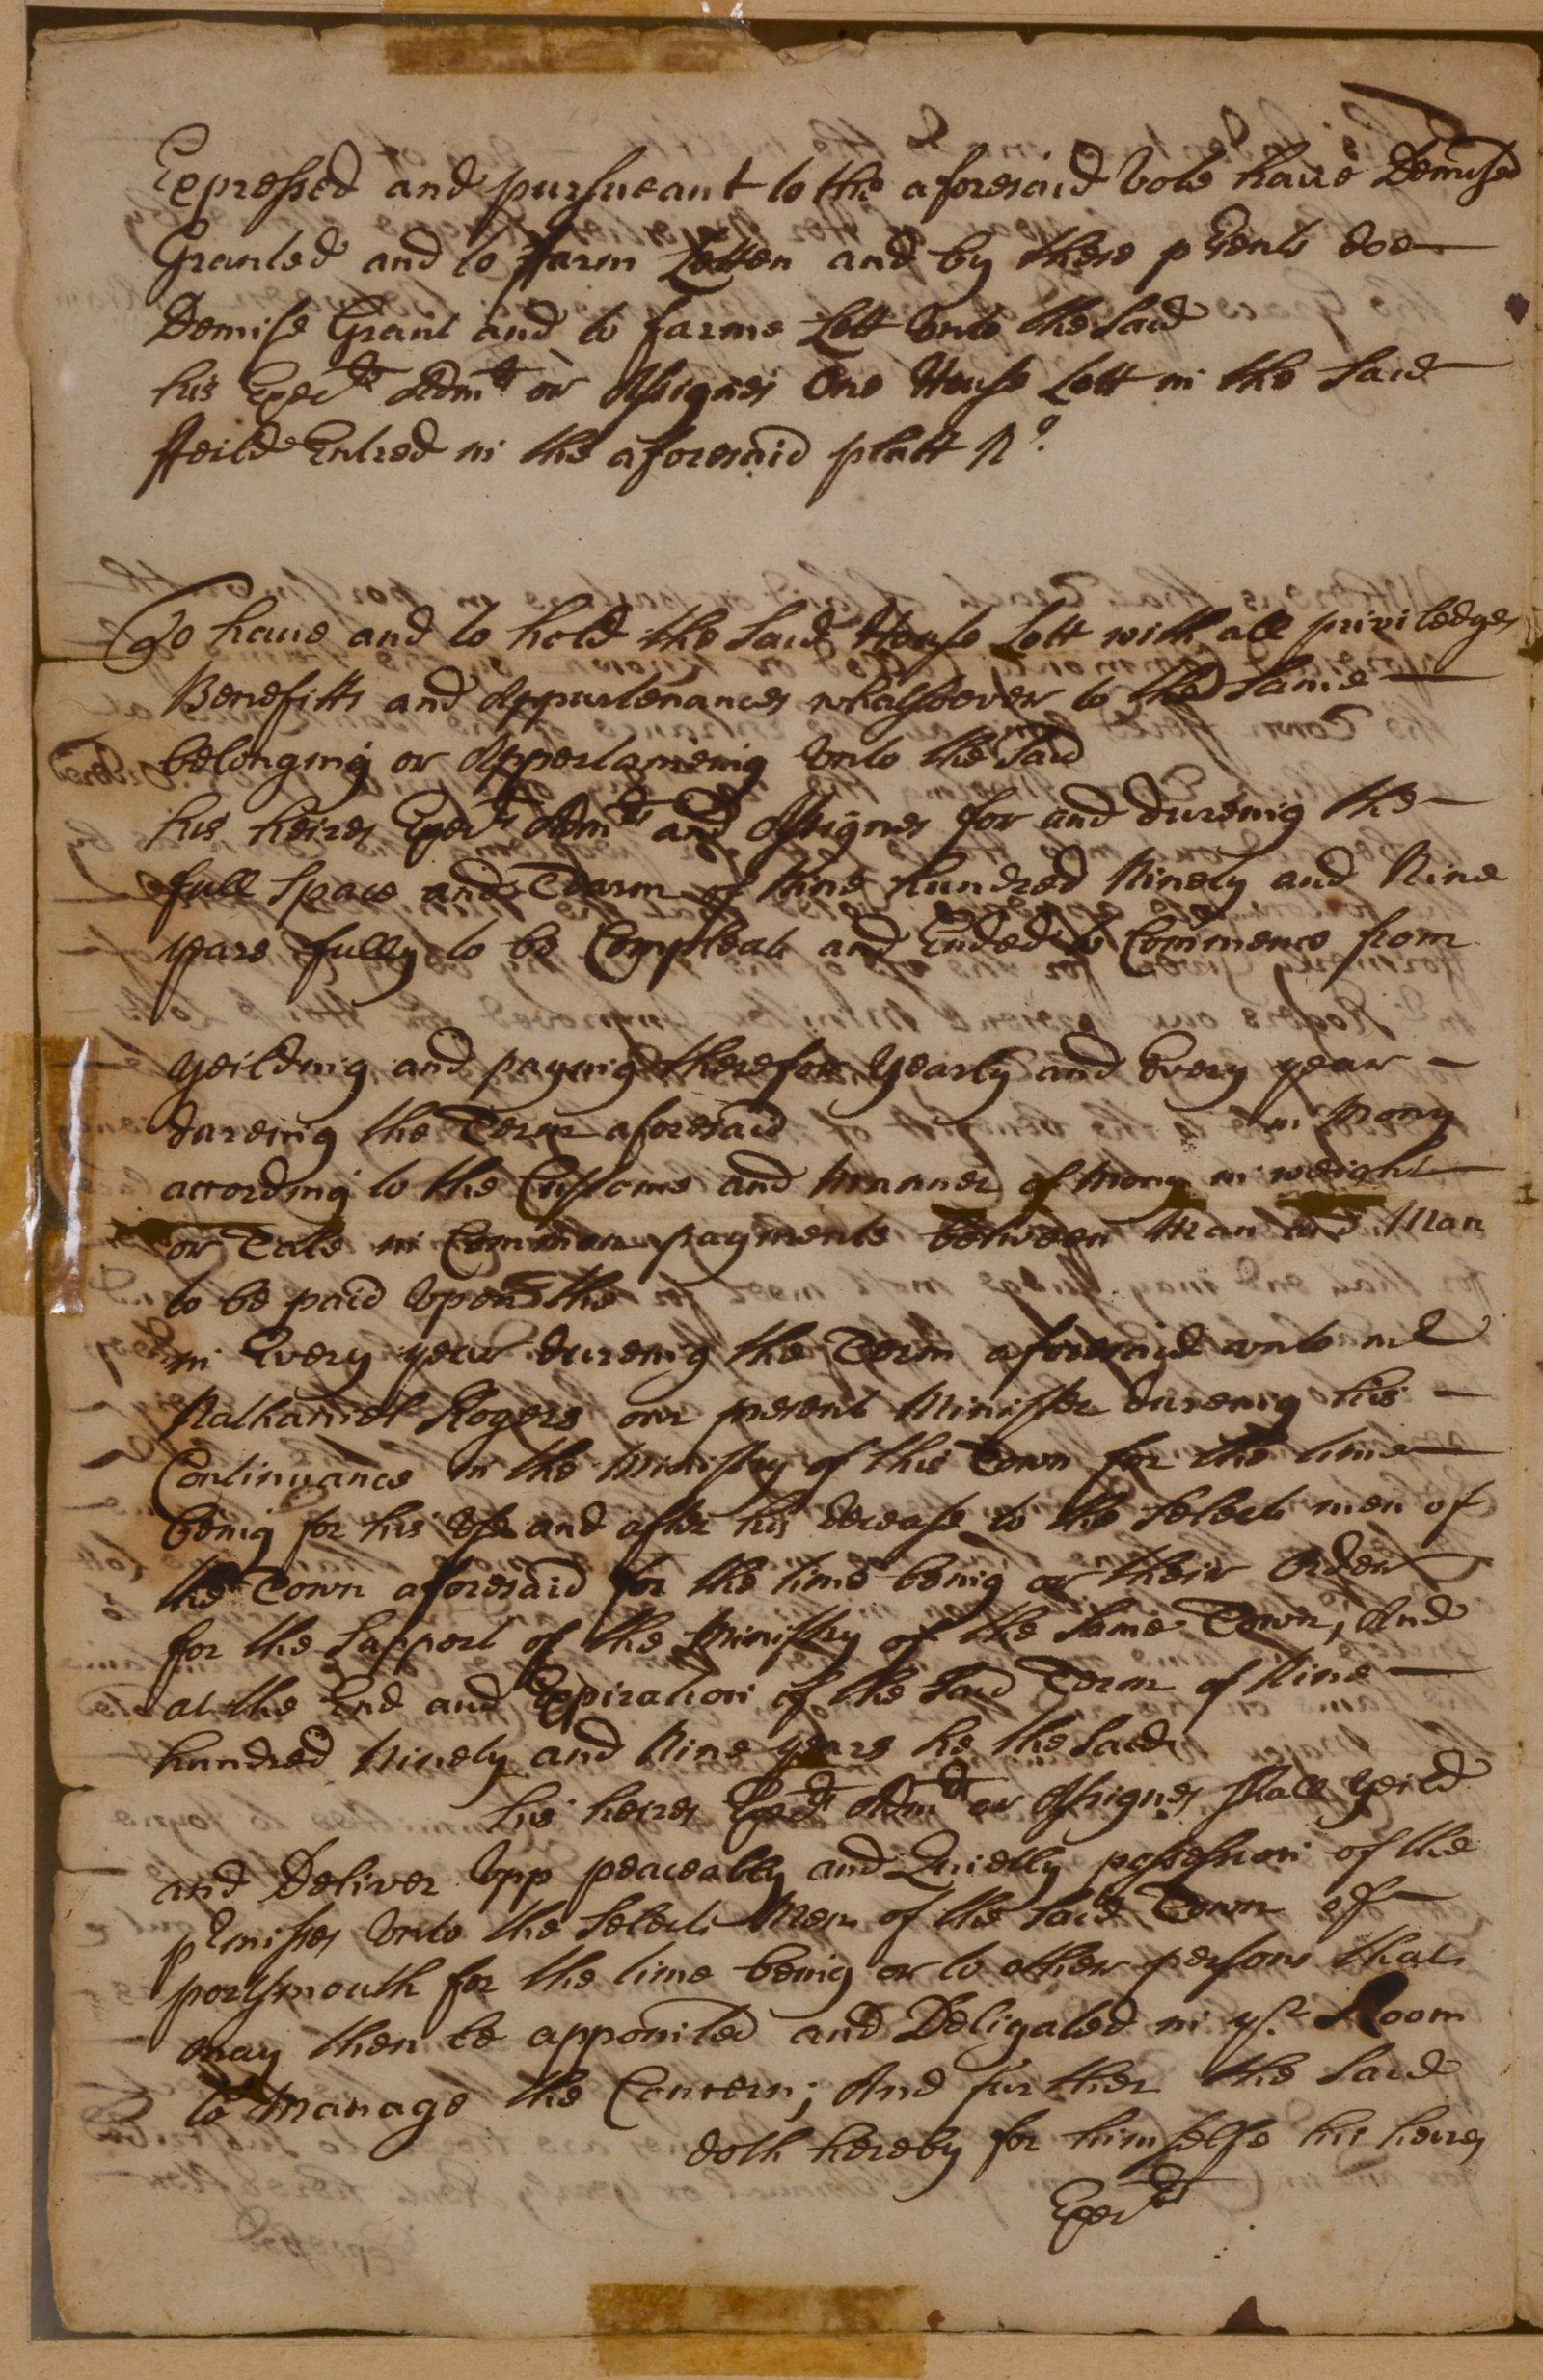 Expressed and pursueant to the aforesaid Vote have Demised
Granted and to ffarm Letten and by these psents doe
Demise Grant and to farme Lett Unto the Said
his Execrs Admrs or Assignes One House Lott in the Said
ffeild Entred in the aforesaid platt No
To have and to hold the Said House Lott with all priviledges
Benefitts and Appurtenances whatsoever to the Same
belonging or Appertaineing Unto the Said
his heires Execrs Admrs and Assignes for and dureing the
full Space and Tearm of Nine hundred Ninety and Nine
years fully to be Compleat and Ended to Commence from
Yeilding and paying therefore Yearly and Every year
dureing the Term aforesaid in Mony
according to the Custome and Manner of Mony in weight
or Tale in Common payments between Man and Man
to be paid Upon the
in Every year dureing the Term aforesaid unto mr
Nathaniel Rogers our present Minister dureing his
Continuance in the Ministry of this Town for the time
being for his Use and after his decease to the Select men of
the Town aforesaid for the time being or their Order
for the Support of the Ministry of the Same Town, And
at the End and Expiration of the Said Term of Nine
hundred Ninety and Nine years he the Said
his heires Execrs Admrs or Assignes shall Yeild
and Deliver Upp peaceably and Quietly possession of the
pmisses Unto the Select Men of the Said Town of
portsmouth for the time being or to other persons that
may then be appointed and Deligated in yr Room
to Manage the Concern; And further the Said
doth hereby for himselfe his heires
Execrs